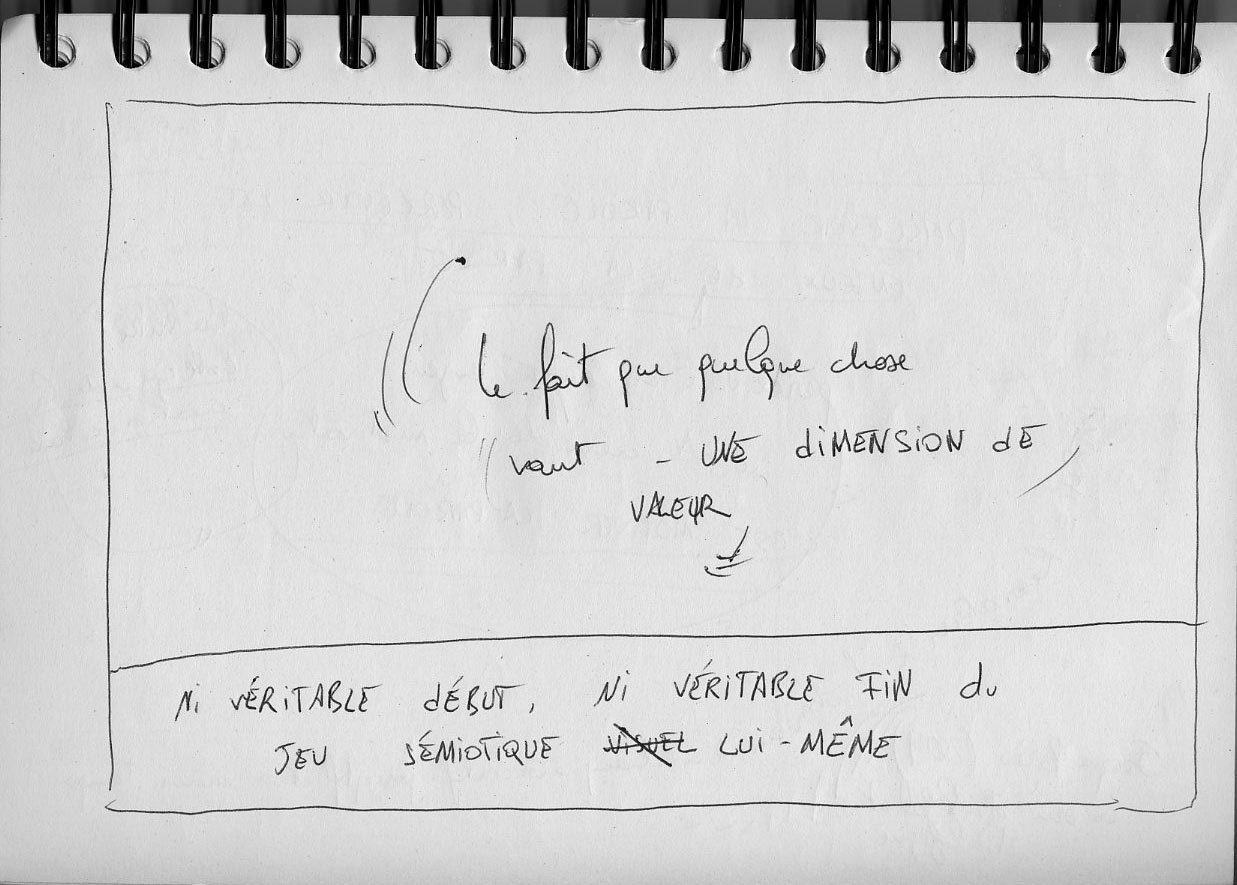 Le fait que quelque chose
vaut - UNE diMENSiON dE
VALEUR
Ni VÉRiTABLE dÉBUT, Ni VÉRiTABLE FiN du
JEU SÉMiOTiQUE ViSUEL LUi-MÊME